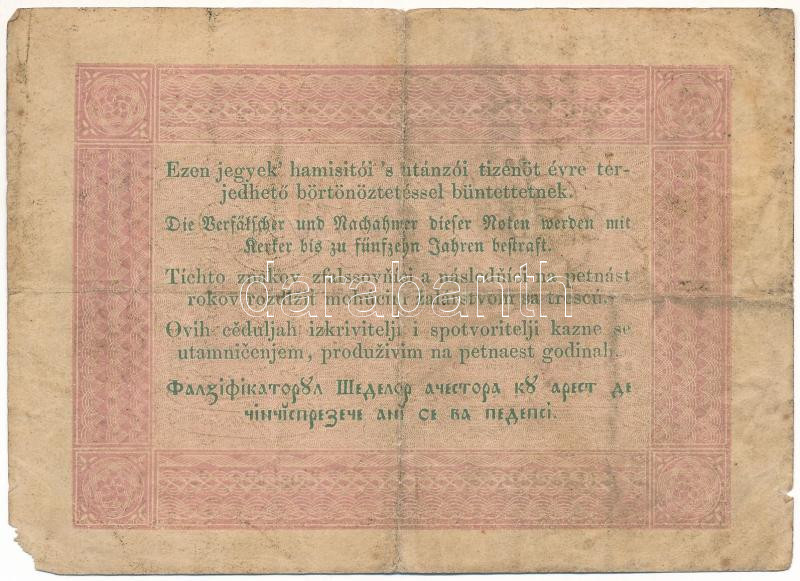 Ezen jegyek' hamisitói 's utánzói tizenöt évre ter-
jedhető börtönöztetéssel büntettetnek.
Die Verfälscher und Nachahmer dieser Noten werden mit
Kerker bis zu fünfzehn Jahren bestraft.
Tíchto znakov zfalssovňíci a násladňíci na petnást
rokov rozdlžit mohúcim žalárstvom sa trescú.
darabanth
Ovih cěduljah izkrivitelji i spotvoritelji kazne se
utamničenjem, produživim na petnaest godinah.
Фалꙁіфікаторꙋл Шеделор ачестора кꙋ арест де
чінчіспреꙁече ані се ва педепсі.